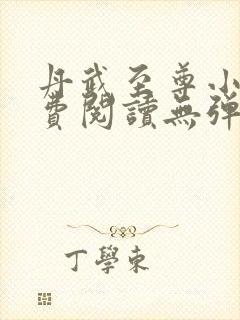 丹武至尊小
費閱讀無彈
丁學東